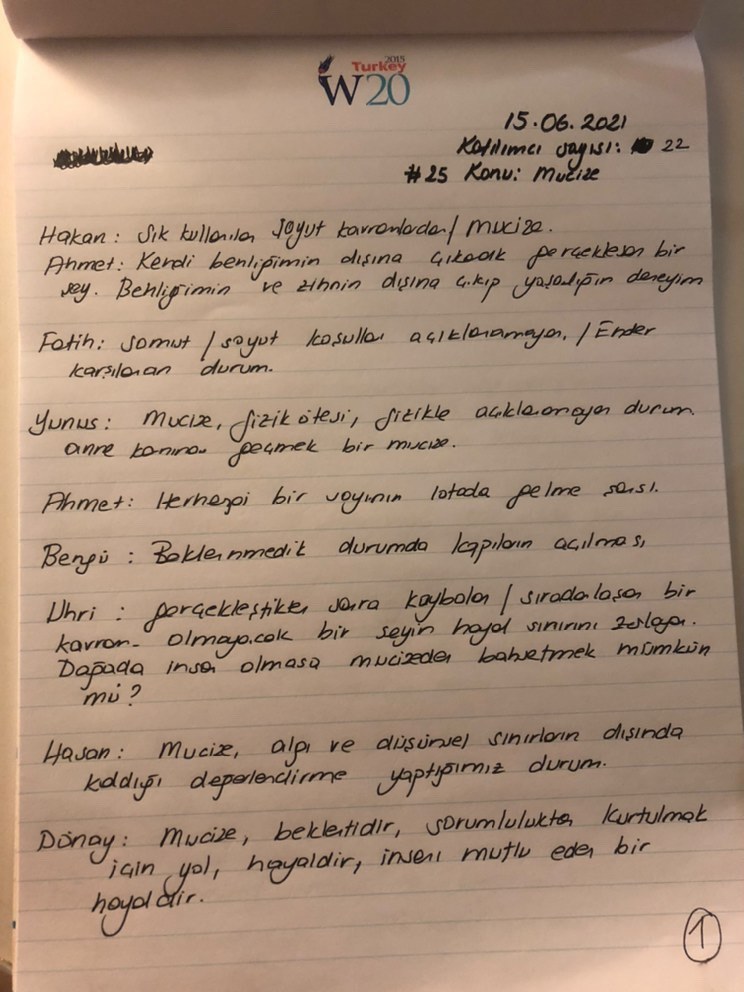 2015
Turkey
W20
15.06.2021
Katılımcı sayısı: 22
#25 Konu: Mucize
Hakan: Sık kullanılan soyut kavramlardan / mucize.
Ahmet: Kendi benliğimin dışına çıkacak gerçekleşen bir
şey. Benliğimin ve zihnin dışına çıkıp yaşadığım deneyim
Fatih: somut / soyut koşullar açıklanamayan, / Ender
karşılanan durum.
Yunus: Mucize, fizik ötesi, fizikle açıklanamayan durum.
anne karnına geçmek bir mucize.
Ahmet: Herhangi bir sayının lotoda gelme şansı.
Bengü: Beklenmedik durumda kapıların açılması
Uhri: gerçekleştikten sonra kaybolan / sıradanlaşan bir
kavram - olmayacak bir şeyin hayal sınırını zorlayan.
Doğada insan olmasa mucizeden bahsetmek mümkün
mü?
Hasan: Mucize, algı ve düşünsel sınırların dışında
kaldığı değerlendirme yaptığımız durum.
Dönay: Mucize, beklentidir, sorumluluktan kurtulmak
için yol, hayaldir, insanı mutlu eden bir
hayaldir.
1